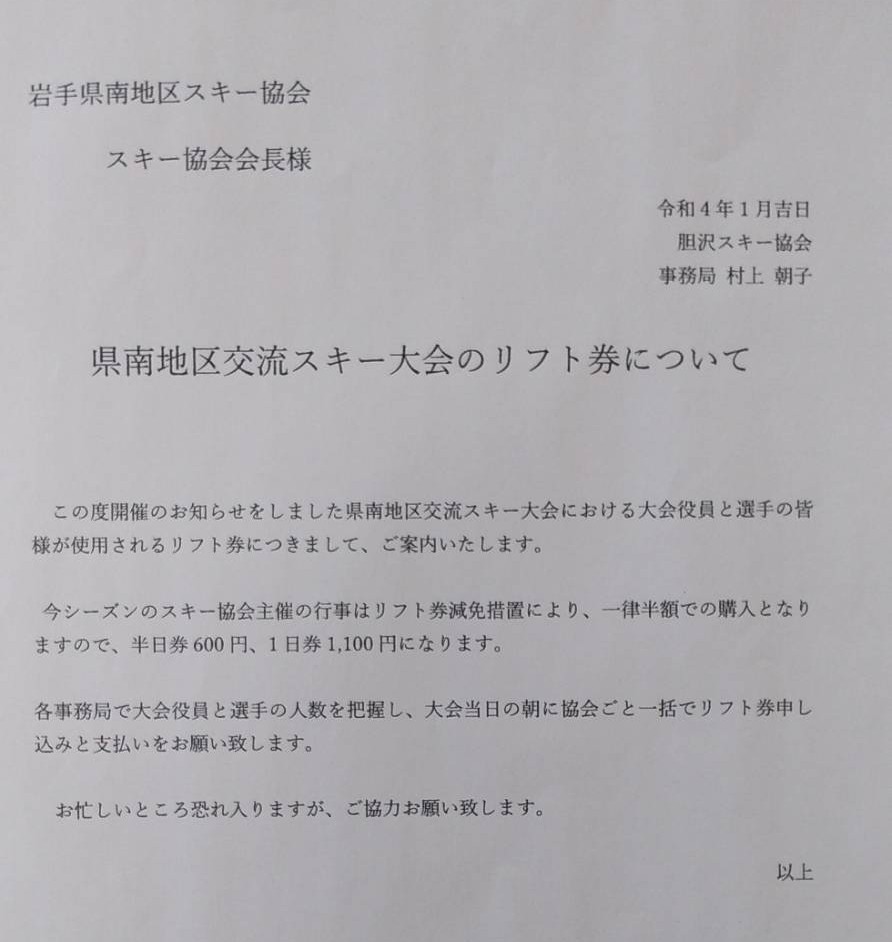 岩手県南地区スキー協会
スキー協会会長様
令和4年1月吉日
胆沢スキー協会
事務局 村上 朝子
県南地区交流スキー大会のリフト券について
この度開催のお知らせをしました県南地区交流スキー大会における大会役員と選手の皆
様が使用されるリフト券につきまして、ご案内いたします。
今シーズンのスキー協会主催の行事はリフト券減免措置により、一律半額での購入となり
ますので、半日券600円、1日券1,100円になります。
各事務局で大会役員と選手の人数を把握し、大会当日の朝に協会ごと一括でリフト券申し
込みと支払いをお願い致します。
お忙しいところ恐れ入りますが、ご協力お願い致します。
以上